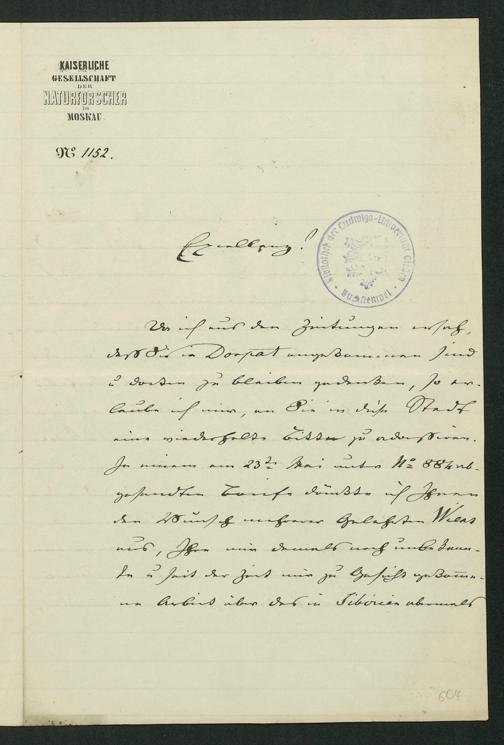 KAISERLICHE
GESELLSCHAFT
DER
NATURFORSCHER
in
MOSKAU
№ 1152.
Excellenz!
Bibliothek der Ludwigs-Universität Gießen
Buchstempel
Da ich aus den Zeitungen ersah,
daß Sie in Dorpat angekommen sind
u dorten zu bleiben gedenken, so er-
laube ich mir, an Sie in diese Stadt
eine wiederholte Bitte zu adressiren.
In einem am 23ten Mai unter № 884 ab-
gesandten Briefe drückte ich Ihnen
den Wunsch mehrerer Gelehrten Wiens
aus, Ihre mir damals noch unbekann-
te u seit der Zeit mir zu Gesicht gekomme-
ne Arbeit über das in Sibirien abermals
604